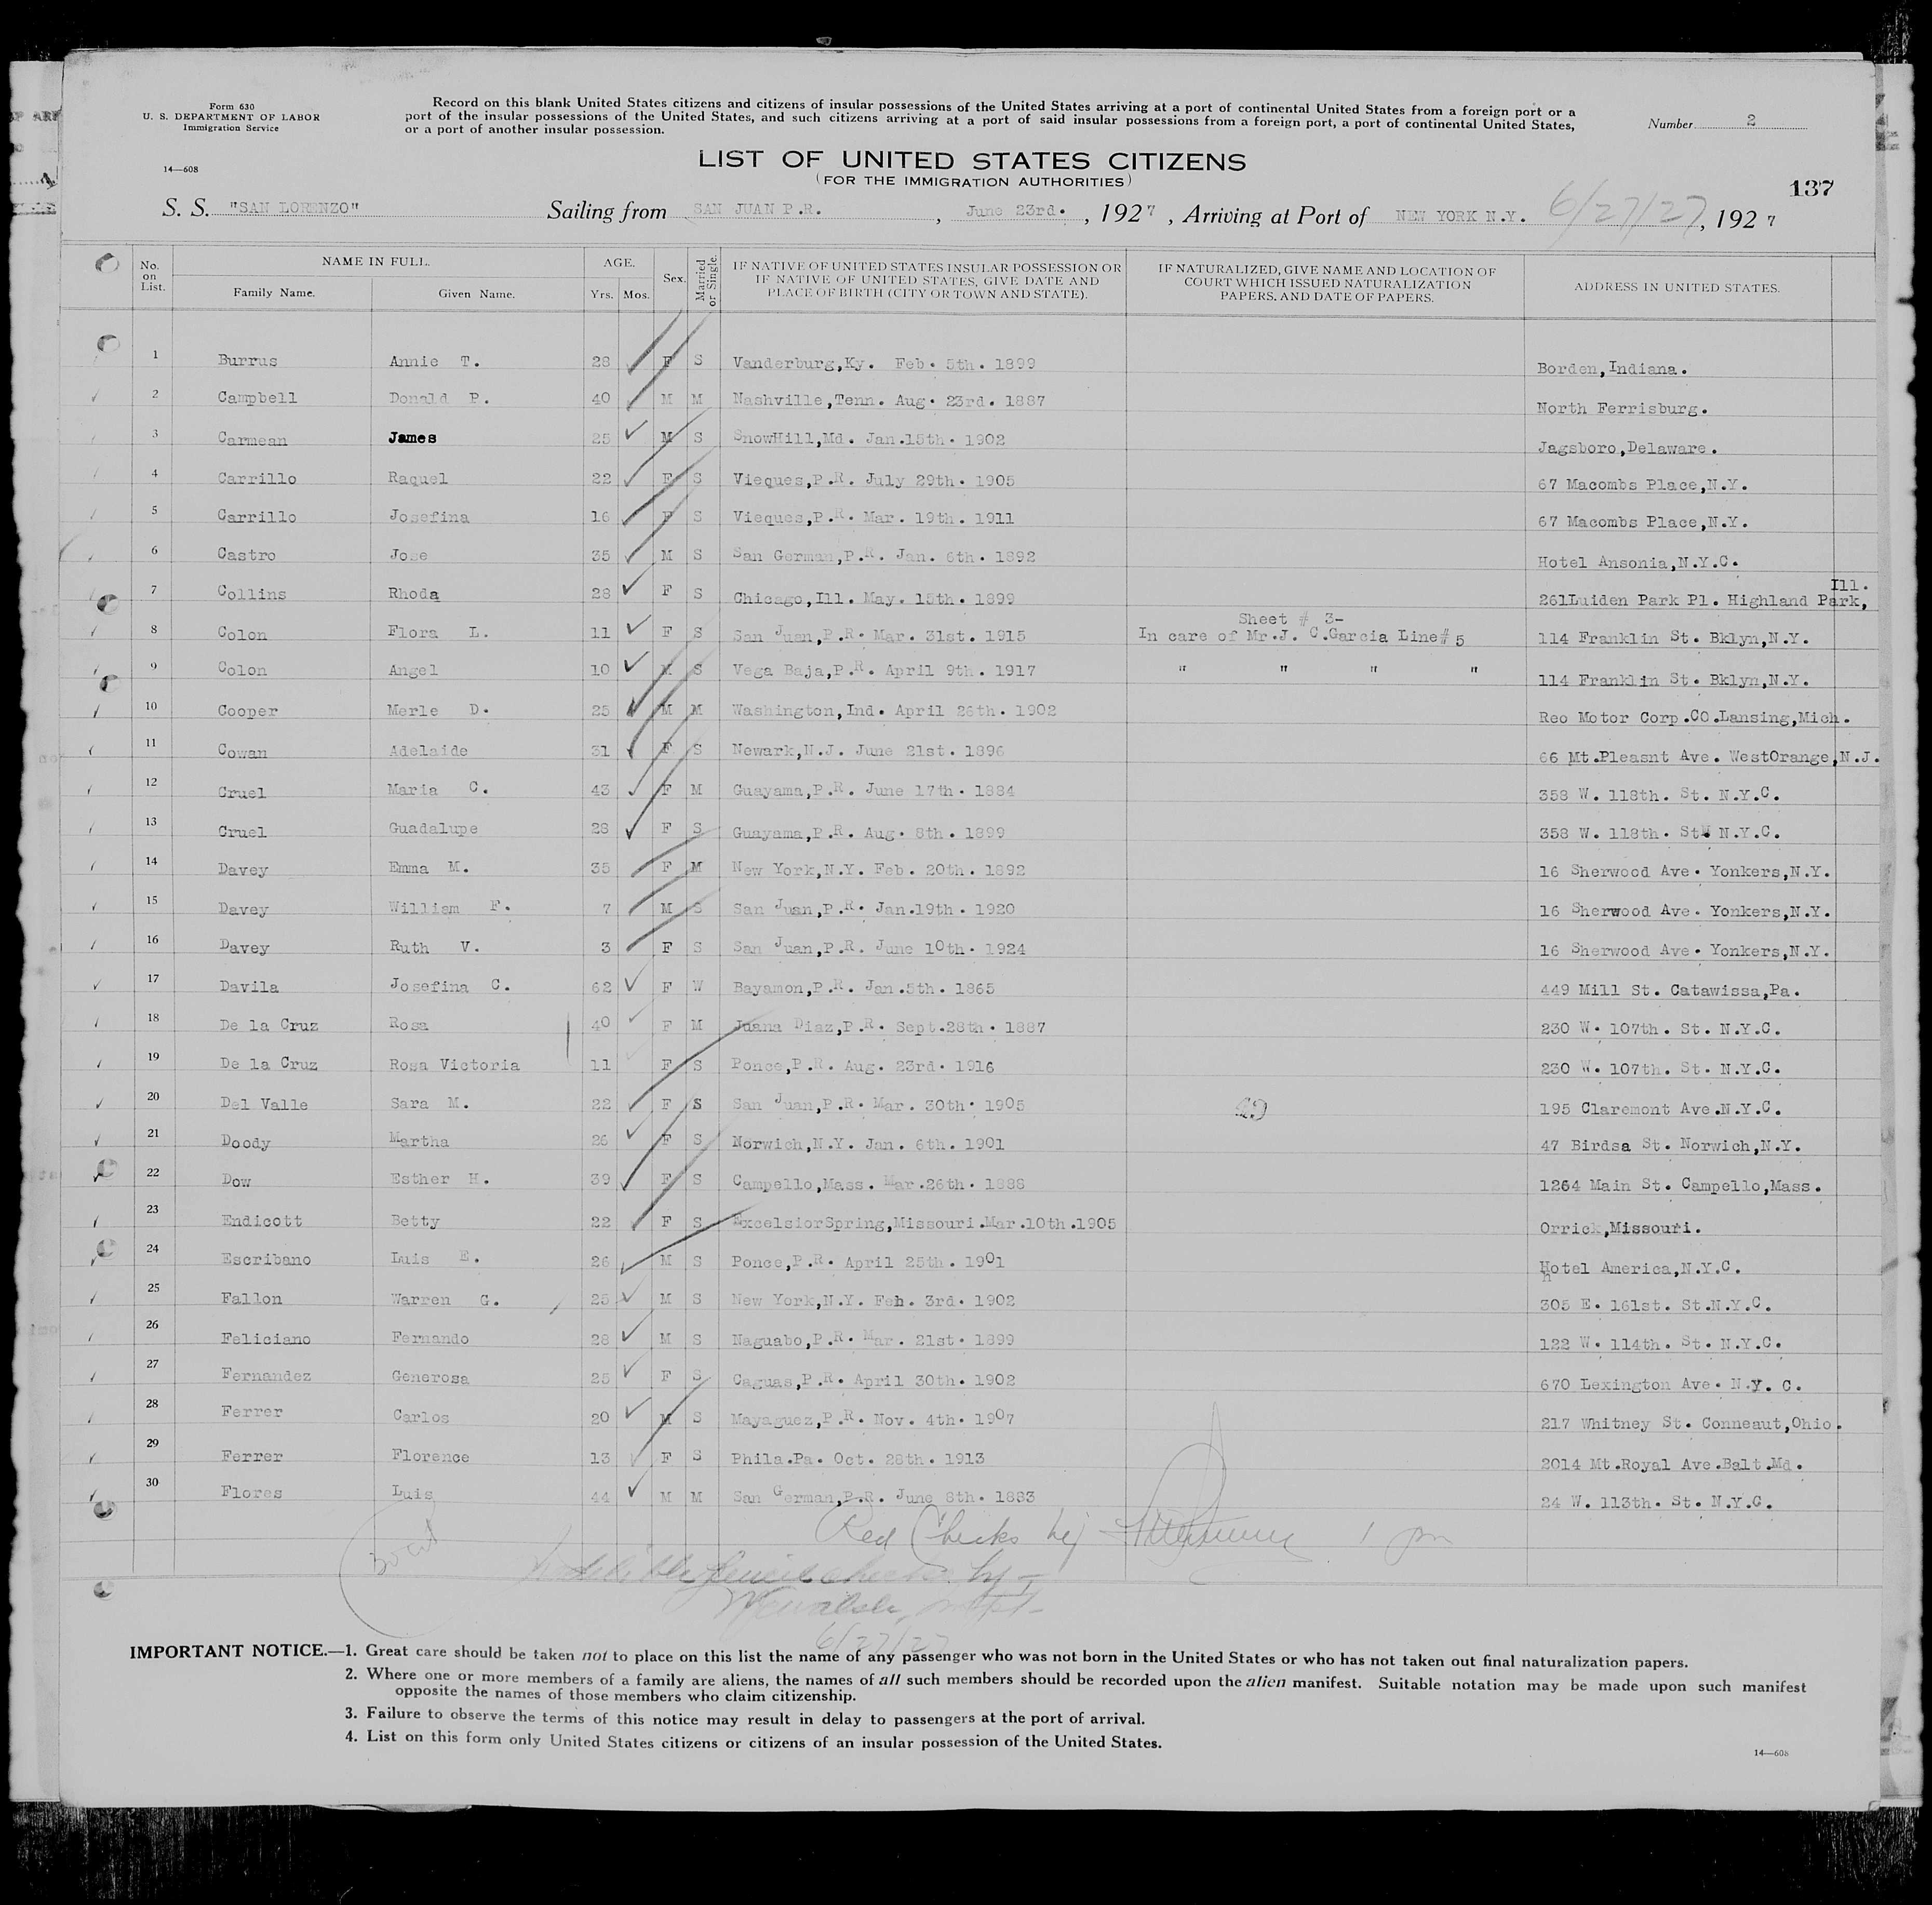 Form 630
U. S. DEPARTMENT OF LABOR
Immigration Service
14—608
Record on this blank United States citizens and citizens of insular possessions of the United States arriving at a port of continental United States from a foreign port or a
port of the insular possessions of the United States, and such citizens arriving at a port of said insular possessions from a foreign port, a port of continental United States,
or a port of another insular possession.
Number 2
LIST OF UNITED STATES CITIZENS
(FOR THE IMMIGRATION AUTHORITIES)
137
S. S. "SAN LORENZO" Sailing from SAN JUAN P.R. , June 23rd. , 1927 , Arriving at Port of NEW YORK N.Y. 6/27/27 , 1927
No. on List. NAME IN FULL. Family Name. Given Name. AGE. Yrs. Mos. Sex. Married or Single. IF NATIVE OF UNITED STATES INSULAR POSSESSION OR IF NATIVE OF UNITED STATES, GIVE DATE AND PLACE OF BIRTH (CITY OR TOWN AND STATE). IF NATURALIZED, GIVE NAME AND LOCATION OF COURT WHICH ISSUED NATURALIZATION PAPERS, AND DATE OF PAPERS. ADDRESS IN UNITED STATES.
1 Burrus Annie T. 28 F S Vanderburg,Ky. Feb. 5th. 1899 Borden,Indiana.
2 Campbell Donald P. 40 M M Nashville,Tenn. Aug. 23rd. 1887 North Ferrisburg.
3 Carmean James 25 M S SnowHill,Md. Jan.15th. 1902 Jagsboro,Delaware.
4 Carrillo Raquel 22 F S Vieques,P.R. July 29th. 1905 67 Macombs Place,N.Y.
5 Carrillo Josefina 16 F S Vieques,P.R. Mar. 19th. 1911 67 Macombs Place,N.Y.
6 Castro Jose 35 M S San German,P.R. Jan. 6th. 1892 Hotel Ansonia,N.Y.C.
7 Collins Rhoda 28 F S Chicago,Ill. May. 15th. 1899 261Luiden Park Pl. Highland Park, Ill.
Sheet # 3-
8 Colon Flora L. 11 F S San Juan,P.R. Mar. 31st. 1915 In care of Mr.J. C.Garcia Line# 5 114 Franklin St. Bklyn,N.Y.
9 Colon Angel 10 M S Vega Baja,P.R. April 9th. 1917 " " " " 114 Franklin St. Bklyn,N.Y.
10 Cooper Merle D. 25 M M Washington,Ind. April 26th. 1902 Reo Motor Corp.CO.Lansing,Mich.
11 Cowan Adelaide 31 F S Newark,N.J. June 21st. 1896 66 Mt.Pleasnt Ave. WestOrange,N.J.
12 Cruel Maria C. 43 F M Guayama,P.R. June 17th. 1884 358 W. 118th. St. N.Y.C.
13 Cruel Guadalupe 28 F S Guayama,P.R. Aug. 8th. 1899 358 W. 118th. St. N.Y.C.
14 Davey Emma M. 35 F M New York,N.Y. Feb. 20th. 1892 16 Sherwood Ave. Yonkers,N.Y.
15 Davey William F. 7 M S San Juan,P.R. Jan.19th. 1920 16 Sherwood Ave. Yonkers,N.Y.
16 Davey Ruth V. 3 F S San Juan,P.R. June 10th. 1924 16 Sherwood Ave. Yonkers,N.Y.
17 Davila Josefina C. 62 F W Bayamon,P.R. Jan.5th. 1865 449 Mill St. Catawissa,Pa.
18 De la Cruz Rosa 40 F M Juana Diaz,P.R. Sept.28th. 1887 230 W. 107th. St. N.Y.C.
19 De la Cruz Rosa Victoria 11 F S Ponce,P.R. Aug. 23rd. 1916 230 W. 107th. St. N.Y.C.
20 Del Valle Sara M. 22 F S San Juan,P.R. Mar. 30th. 1905 195 Claremont Ave.N.Y.C.
21 Doody Martha 26 F S Norwich,N.Y. Jan. 6th. 1901 47 Birdsa St. Norwich,N.Y.
22 Dow Esther H. 39 F S Campello,Mass. Mar.26th. 1888 1264 Main St. Campello,Mass.
23 Endicott Betty 22 F S ExcelsiorSpring,Missouri.Mar.10th.1905 Orrick,Missouri.
24 Escribano Luis E. 26 M S Ponce,P.R. April 25th. 1901 Hotel America,N.Y.C.
25 Fallon Warren G. 25 M S New York,N.Y. Feb. 3rd. 1902 305 E. 161st. St.N.Y.C.
26 Feliciano Fernando 28 M S Naguabo,P.R. Mar. 21st. 1899 122 W. 114th. St. N.Y.C.
27 Fernandez Generosa 25 F S Caguas,P.R. April 30th. 1902 670 Lexington Ave. N.Y. C.
28 Ferrer Carlos 20 M S Mayaguez,P.R. Nov. 4th. 1907 217 Whitney St. Conneaut,Ohio.
29 Ferrer Florence 13 F S Phila.Pa. Oct. 28th. 1913 2014 Mt.Royal Ave.Balt.Md.
30 Flores Luis 44 M M San German,P.R. June 8th. 1883 24 W. 113th. St. N.Y.C.
Red Checks by
Indelible pencil checks by
6/27/27
IMPORTANT NOTICE.—1. Great care should be taken not to place on this list the name of any passenger who was not born in the United States or who has not taken out final naturalization papers.
2. Where one or more members of a family are aliens, the names of all such members should be recorded upon the alien manifest. Suitable notation may be made upon such manifest
opposite the names of those members who claim citizenship.
3. Failure to observe the terms of this notice may result in delay to passengers at the port of arrival.
4. List on this form only United States citizens or citizens of an insular possession of the United States.
14—608